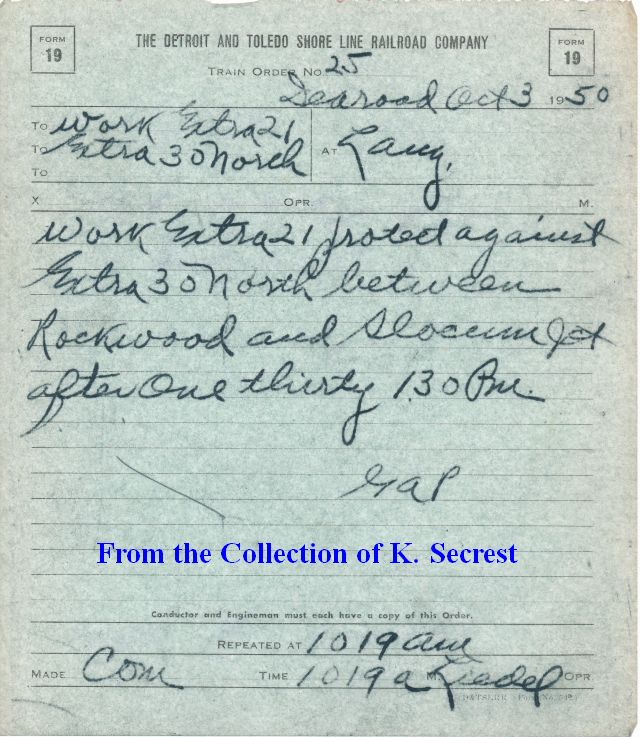 FORM
19
THE DETROIT AND TOLEDO SHORE LINE RAILROAD COMPANY
FORM
19
TRAIN ORDER NO. 25
Dearoad Oct 3 1950
To Work Extra 21
To Extra 30 North
To
AT Lang,
X OPR. M.
Work Extra 21 protect against
Extra 30 North between
Rockwood and Slocum Jct
after One thirty 130 Pm.
GAP
From the Collection of K. Secrest
Conductor and Engineman must each have a copy of this Order.
REPEATED AT 1019 am
MADE Com TIME 1019 a M. OPR